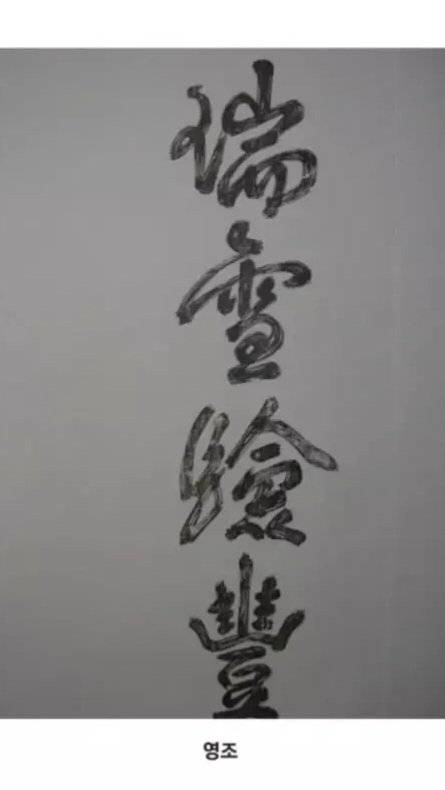 瑞雪驗豐
영조